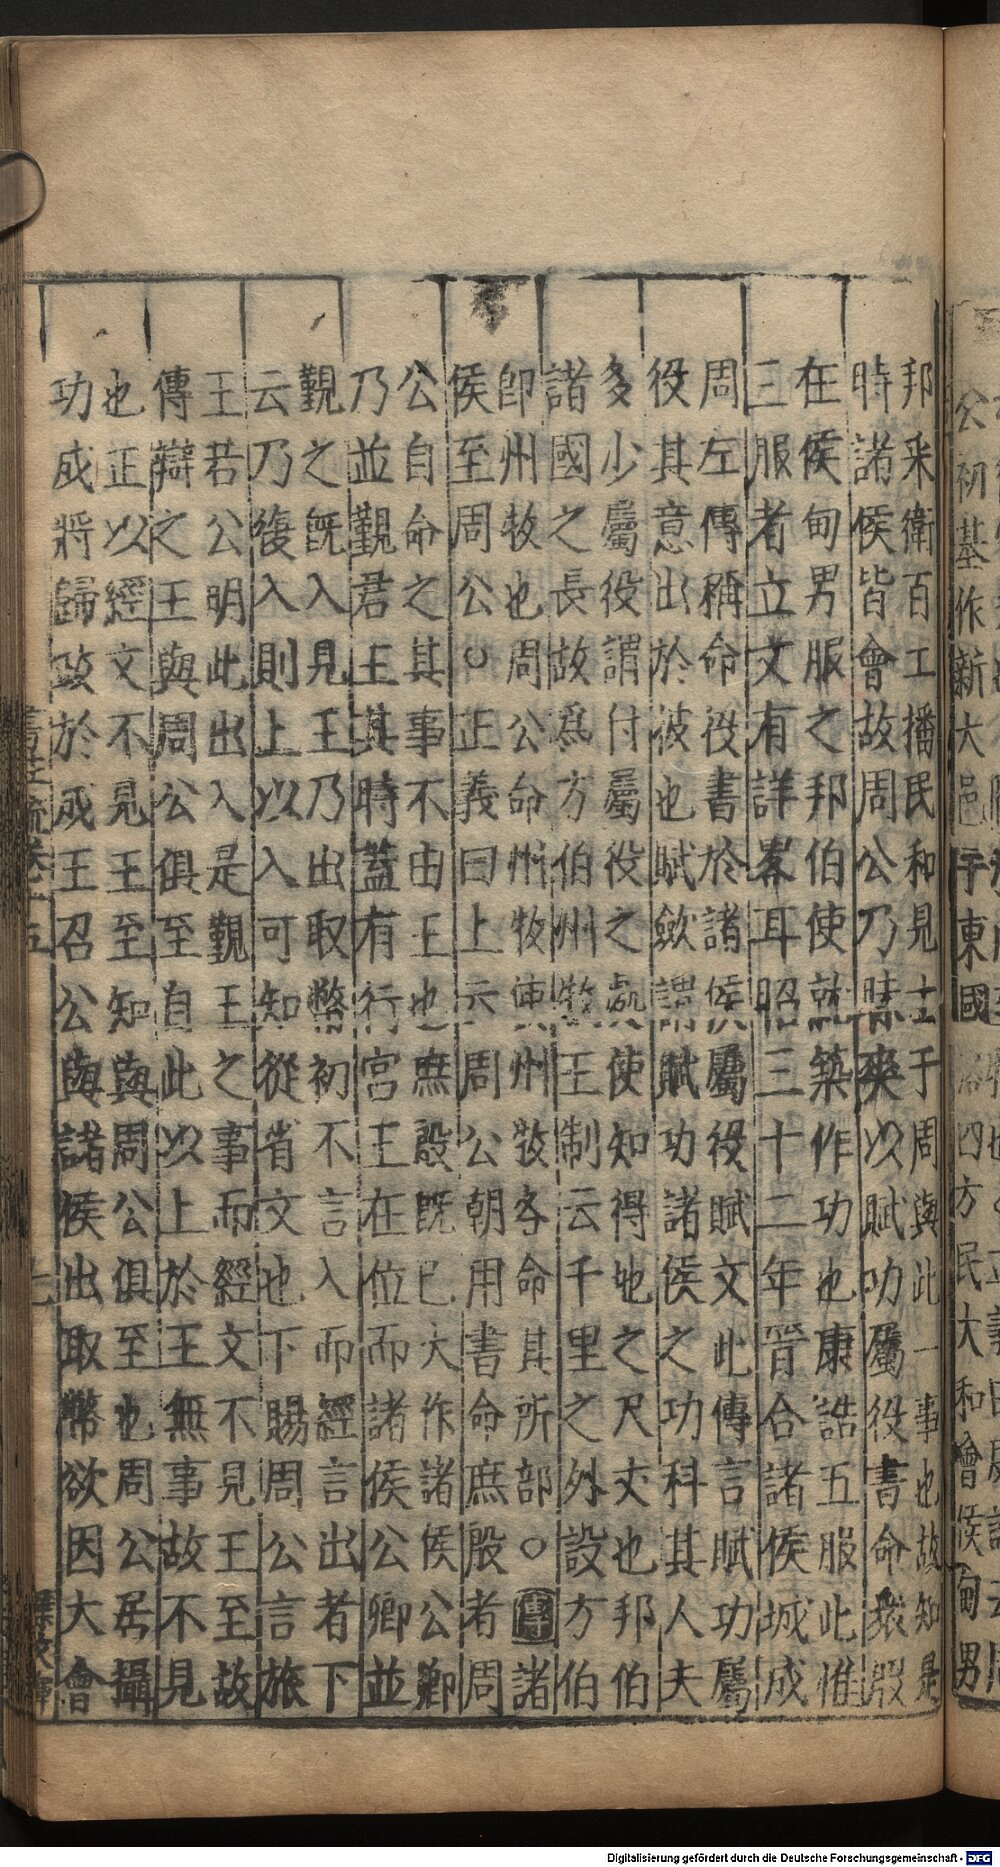 公初基作新大邑于東國洛四方民大和會侯甸男
邦采衛百工播民和見士于周與此一事也故知是
時諸侯皆會故周公乃昧爽以賦功屬役書命衆殷
在侯甸男服之邦伯使就築作功也康誥五服此惟
三服者立文有詳畧耳昭三十二年晉合諸侯城成
周左傳稱命役書於諸侯屬役賦文此傳言賦功屬
役其意出於波也賦斂謂賦功諸侯之功科其人夫
多少屬役謂付屬役之處使知得地之尺丈也邦伯
諸國之長故爲方伯州牧王制云千里之外設方伯
卽州牧也周公命州牧使州牧各命其所部○傳諸
侯至周公○正義曰上云周公朝用書命庶殷者周
公自命之其事不由王也庶殷旣已大作諸侯公卿
乃並覲君王其時蓋有行宮王在位而諸侯公卿並
覲之旣入見王乃出取幣初不言入而經言出者下
云乃復入則上以入可知從省文也下賜周公言旅
王若公明此出入是覲王之事而經文不見王至故
傳辯之王與周公俱至自此以上於王無事故不見
也正以經文不見王至知與周公俱至也周公居攝
功成將歸政於成王召公與諸侯出取幣欲因大會
Digitalisierung gefördert durch die Deutsche Forschungsgemeinschaft - DFG